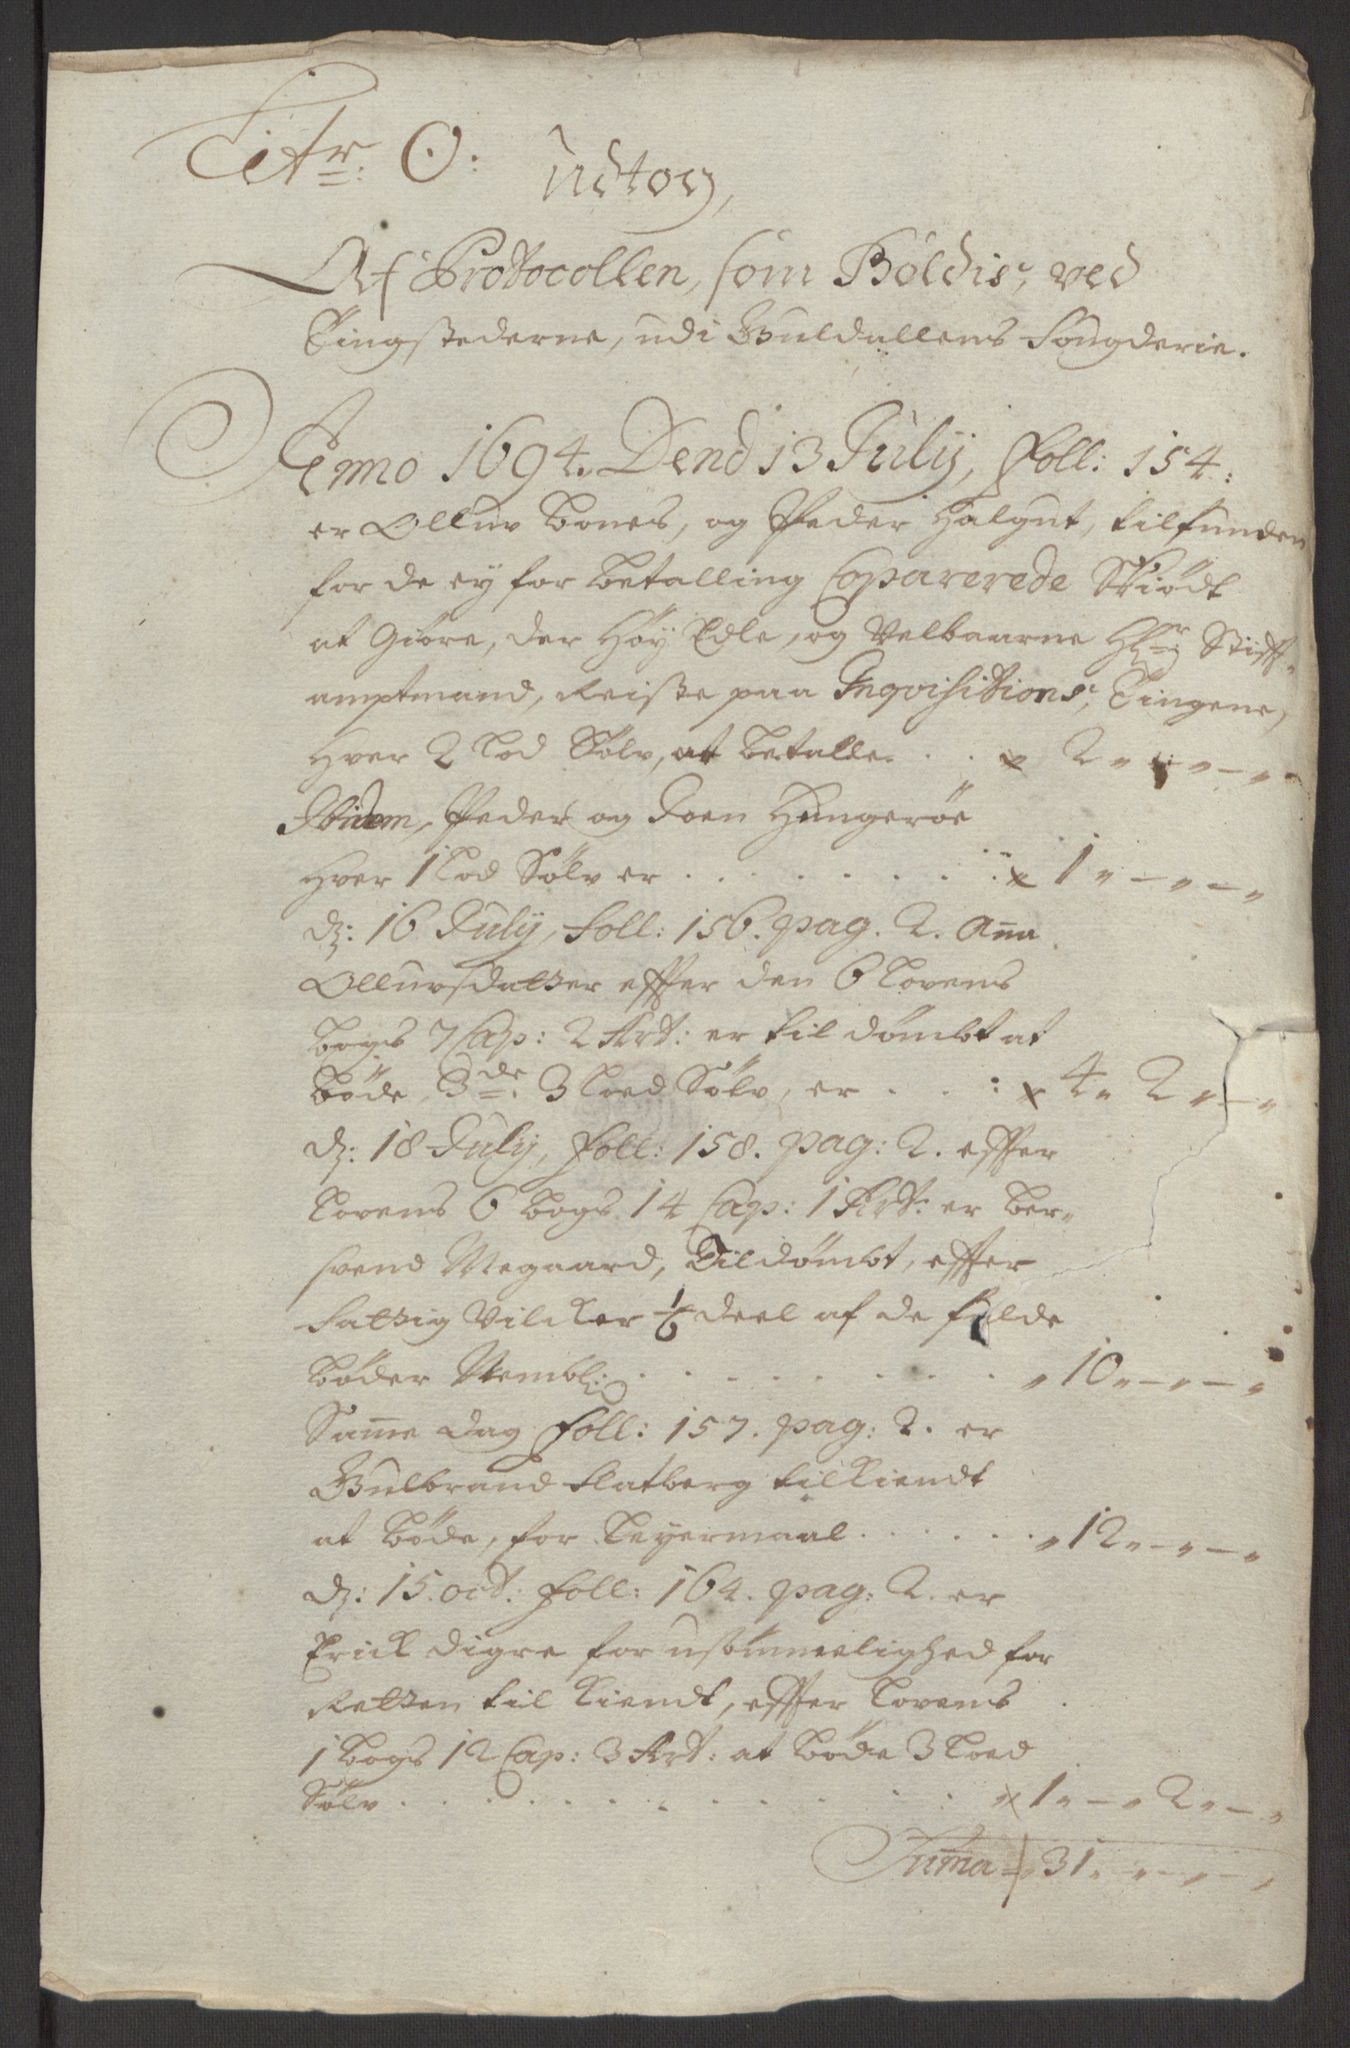 Litr: O: Udtog,
Af Protocollen, som Höldis, ved
Tingstederne, udi Guldallens Fougderie.
Anno 1694. Dend 13 July, Foll: 154:
er Olluv Bones, og Peder Halgut, tilfunden
for de ey for betalling Coparerede Skiödt
at Giöre, der Höy Edle, og Velbaarne Hr: Stifft-
amptmand, Reiste paa Inqvisitions, Tingene,
Hver 2 Lod Sölv, at betalle . . x 2 „ — „ — „
Ibidem, Peder og Joen Hungeröe
Hver 1 Lod Sölv er . . . . . . x 1 „ — „ — „
d: 16 July, Foll: 156. pag. 2. Ana
Olluvsdatter effter den 6 Lovens
bogs 7 Cap: 2 Art: er til dömbt at
böde, 3de 3 Loed Sölv, er . . . : x 4 „ 2 „ — „
d: 18 July, Foll: 158. pag: 2. effter
Lovens 6 bogs 14 Cap: 1 Art: er Ber-
svend Megaard, Tildömbt, effter
fattig Vilcker 1/6 deel af de fulde
böder Nembl: . . . . . . „ 10 „ — „ — „
Same Dag Foll: 157. pag: 2. er
Gulbrand Flatberg tilkiendt
at böde, for Leyermaal . . . . . „ 12 „ — „ — „
d: 15. oct: Foll: 164. pag: 2. er
Erick Digre for usömmelighed for
Retten til kiendt, effter Lovens
1 bogs 12 Cap: 3 Art: at böde 3 Loed
Sölv . . . . . . . . . x 1 „ — „ 2 „ — „
Suma „ 31 „ — „ — „